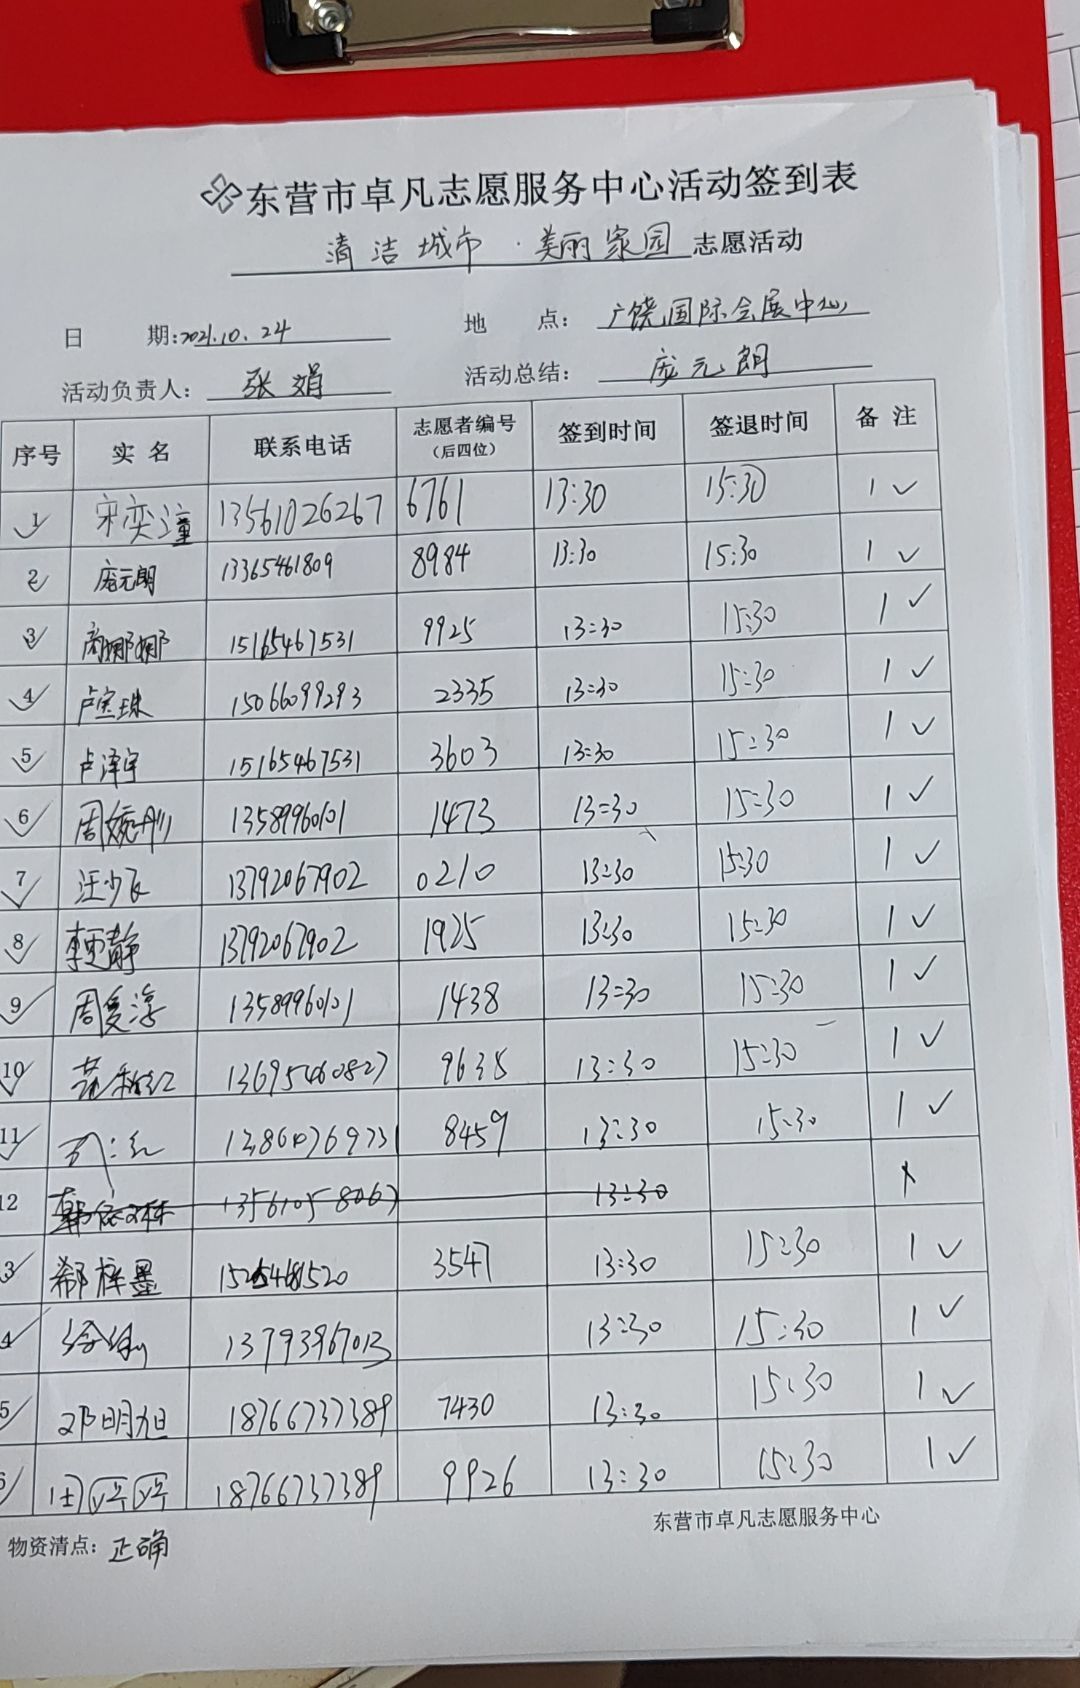 东营市卓凡志愿服务中心活动签到表
清洁城市·美丽家园 志愿活动
日 期:2021.10.24 地 点: 广饶国际会展中心
活动负责人: 张娟 活动总结: 庞元朗
序号 实名 联系电话 志愿者编号(后四位) 签到时间 签退时间 备注
1 宋奕潼 13561026267 6761 13:30 15:30 1 ✓
2 庞元朗 13365461809 8984 13:30 15:30 1 ✓
3 商娜娜 15165467531 9925 13:30 15:30 1 ✓
4 卢宝珠 15066099293 2335 13:30 15:30 1 ✓
5 卢泽宇 15165467531 3603 13:30 15:30 1 ✓
6 周婉彤 13589960101 1473 13:30 15:30 1 ✓
7 汪少飞 13792067902 0210 13:30 15:30 1 ✓
8 李更静 13792067902 1925 13:30 15:30 1 ✓
9 周复淳 13589960101 1438 13:30 15:30 1 ✓
10 13695460827 9635 13:30 15:30 1 ✓
11 8459 13:30 15:30 1 ✓
12 13:30 x
3 郗梓墨 3547 13:30 15:30 1 ✓
4 13793967013 13:30 15:30 1 ✓
5 邓明旭 18766737389 7430 13:30 15:30 1 ✓
6 田婷婷 18766737389 9926 13:30 15:30 1 ✓
东营市卓凡志愿服务中心
物资清点: 正确